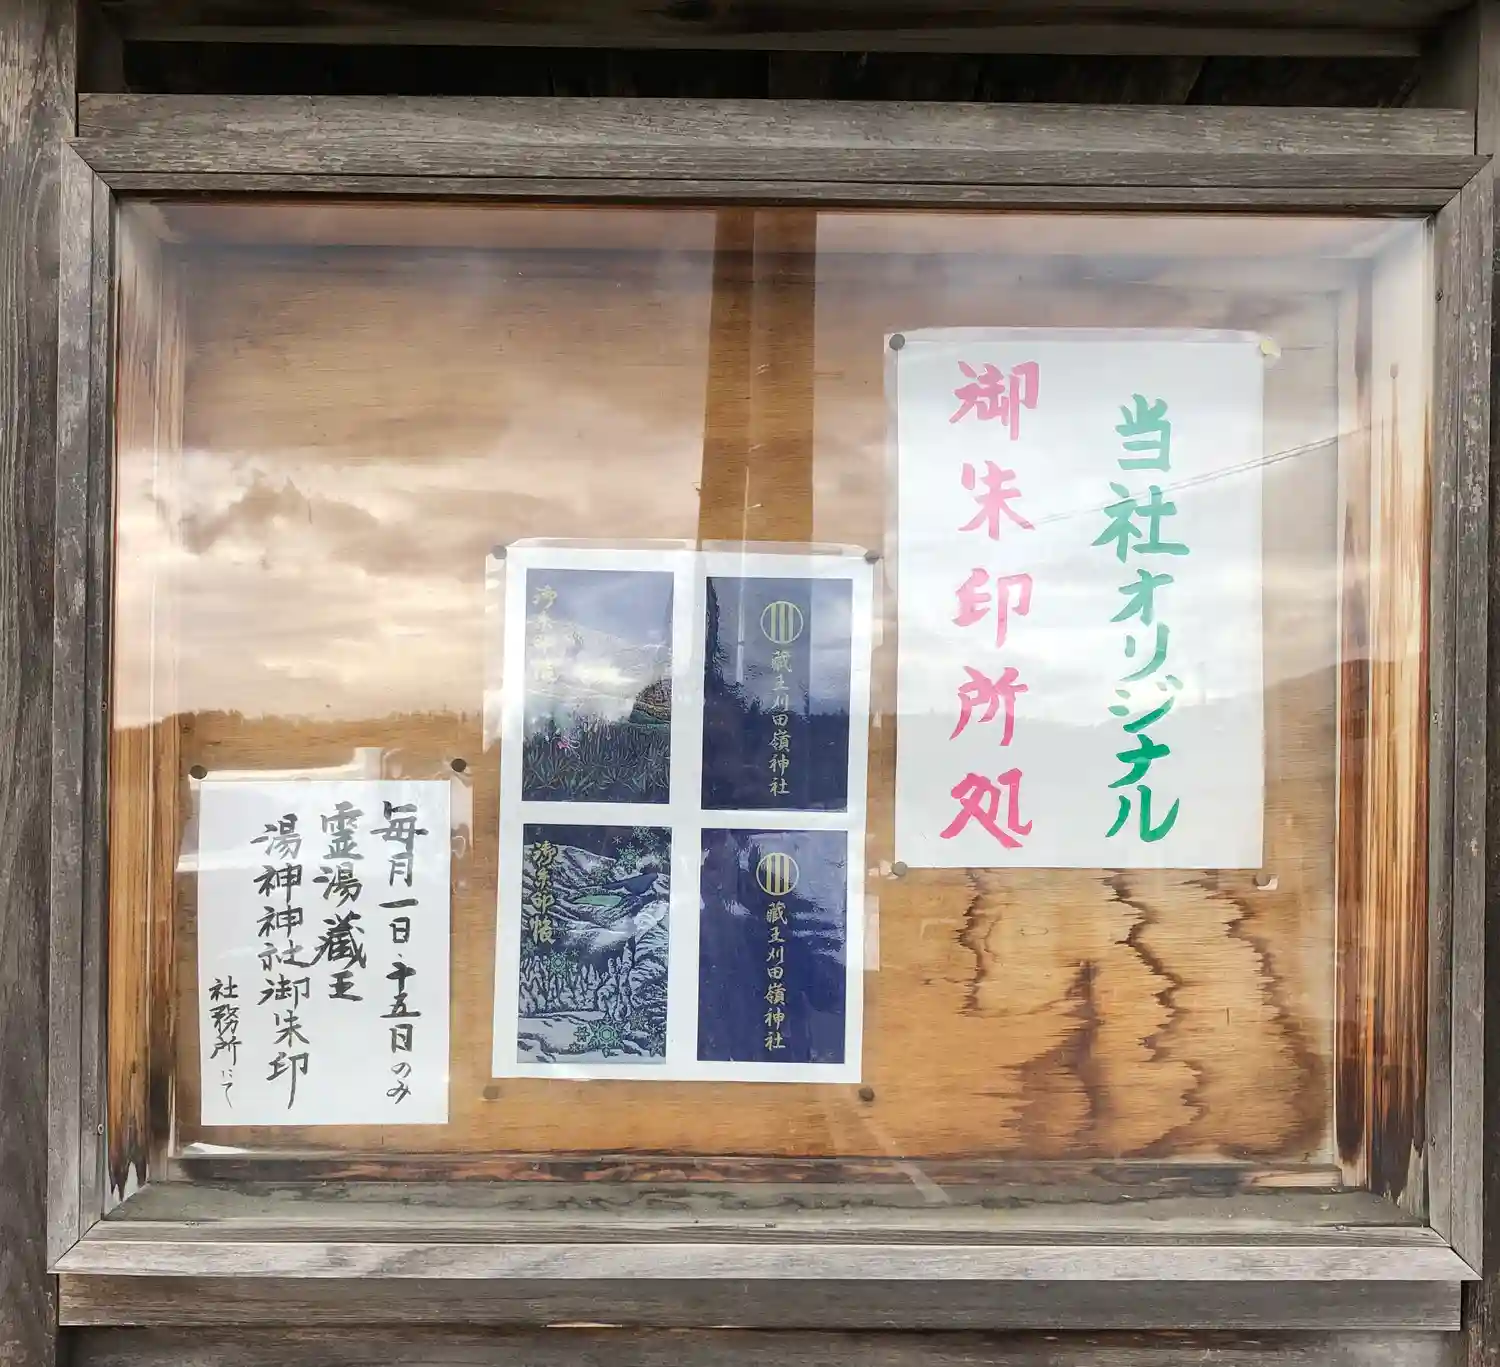 当社オリジナル
御朱印所処
蔵王刈田嶺神社
御朱印帳
蔵王刈田嶺神社
御朱印帳
毎月一日・十五日のみ
霊湯蔵王
湯神神社御朱印
社務所にて